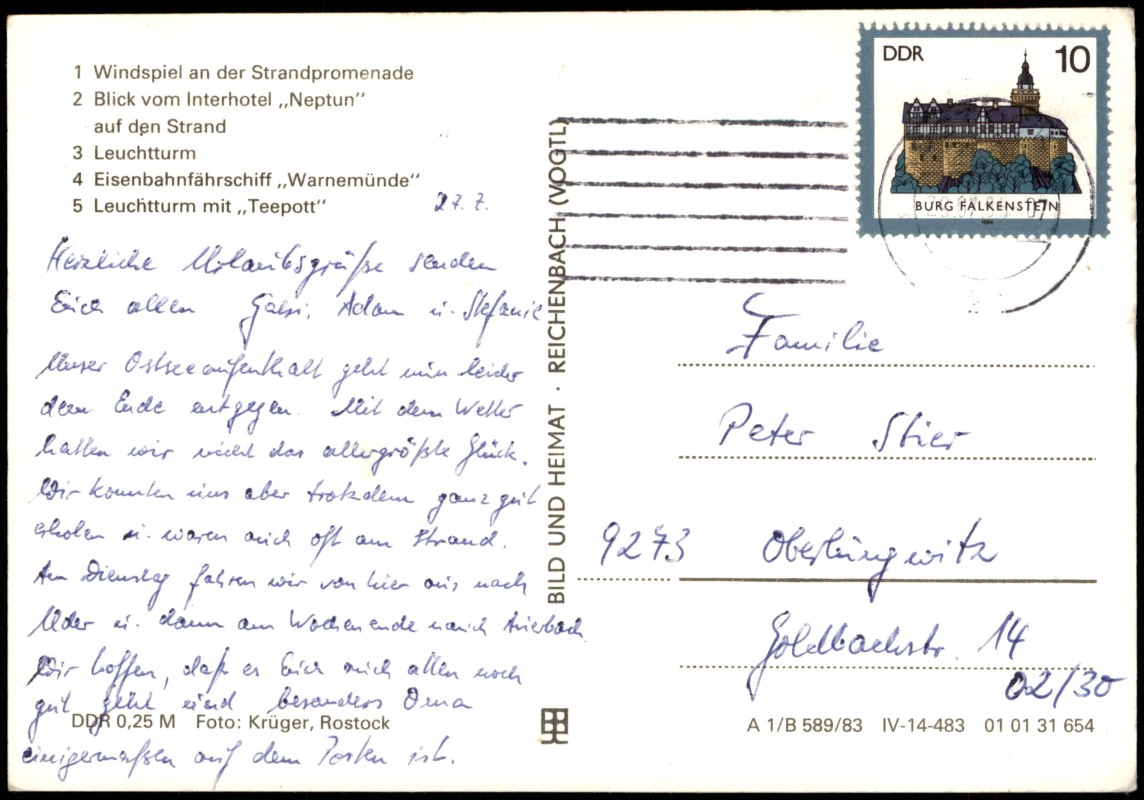 1 Windspiel an der Strandpromenade
2 Blick vom Interhotel „Neptun“
auf den Strand
3 Leuchtturm
4 Eisenbahnfährschiff „Warnemünde“
5 Leuchtturm mit „Teepott“
27. 7.
Herzliche Urlaubsgrüße senden
Euch allen Gabi, Adam u. Stefanie
Unser Ostseeaufenthalt geht nun leider
dem Ende entgegen. Mit dem Wetter
hatten wir nicht das allergrößte Glück.
Wir konnten uns aber trotzdem ganz gut
erholen u. waren auch oft am Strand.
Am Dienstag fahren wir von hier aus nach
Uder u. dann am Wochenende nach Auerbach.
Wir hoffen, daß es Euch auch allen noch
gut geht und besonders Oma
einigermaßen auf dem Posten ist.
DDR 0,25 M Foto: Krüger, Rostock
BILD UND HEIMAT · REICHENBACH (VOGTL)
DDR 10
BURG FALKENSTEIN
Familie
Peter Stier
9273 Oberlungwitz
Goldbachstr. 14
02/30
A 1/B 589/83 IV-14-483 01 01 31 654